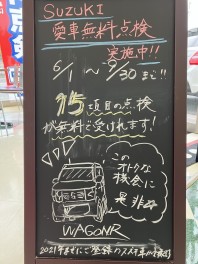 SUZUKI
愛車無料点検
実施中!!
6/1 ~ 9/30 まで!!
15項目の点検
が無料で受けれます!
この
オトクな
機会に
是非
WAGONR
2021年までにご登録の